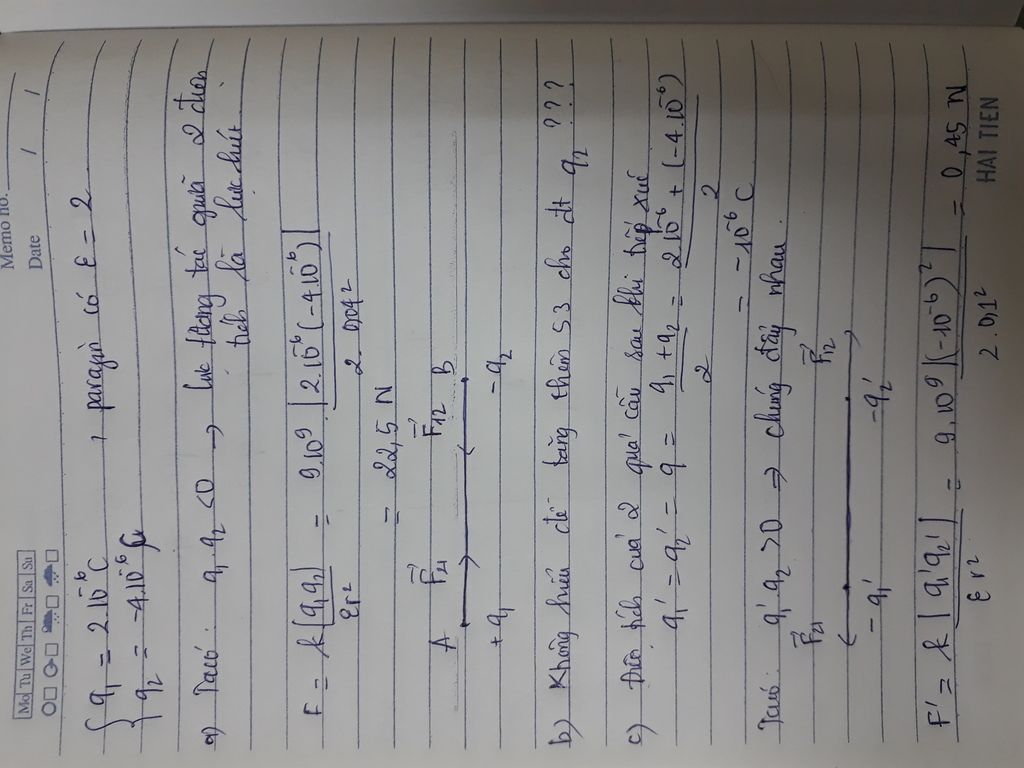 Memo no.
Mo Tu We Th Fr Sa Su
Date / /
q₁ = 2.10⁻⁶ C
q₂ = -4.10⁻⁶ C , parafin có ε = 2
a) Ta có: q₁ q₂ < 0 → lực tương tác giữa 2 điện
tích là lực hút.
F = k |q₁q₂| / εr² = 9.10⁹ |2.10⁻⁶(-4.10⁻⁶)| / 2.0,04²
= 22,5 N
A F₂₁ F₁₂ B
+q₁ -q₂
b) Không hiểu đề tăng thêm 53 cho đt q₂ ???
c) Điện tích của 2 quả cầu sau khi tiếp xúc
q₁' = q₂' = q = q₁ + q₂ / 2 = 2.10⁻⁶ + (-4.10⁻⁶) / 2
= -10⁻⁶ C
Ta có: q₁' q₂' > 0 ⇒ chúng đẩy nhau.
F₂₁ F₁₂
-q₁' -q₂'
F' = k |q₁'q₂'| / εr² = 9.10⁹ |(-10⁻⁶)²| / 2.0,1² = 0,45 N
HAI TIEN